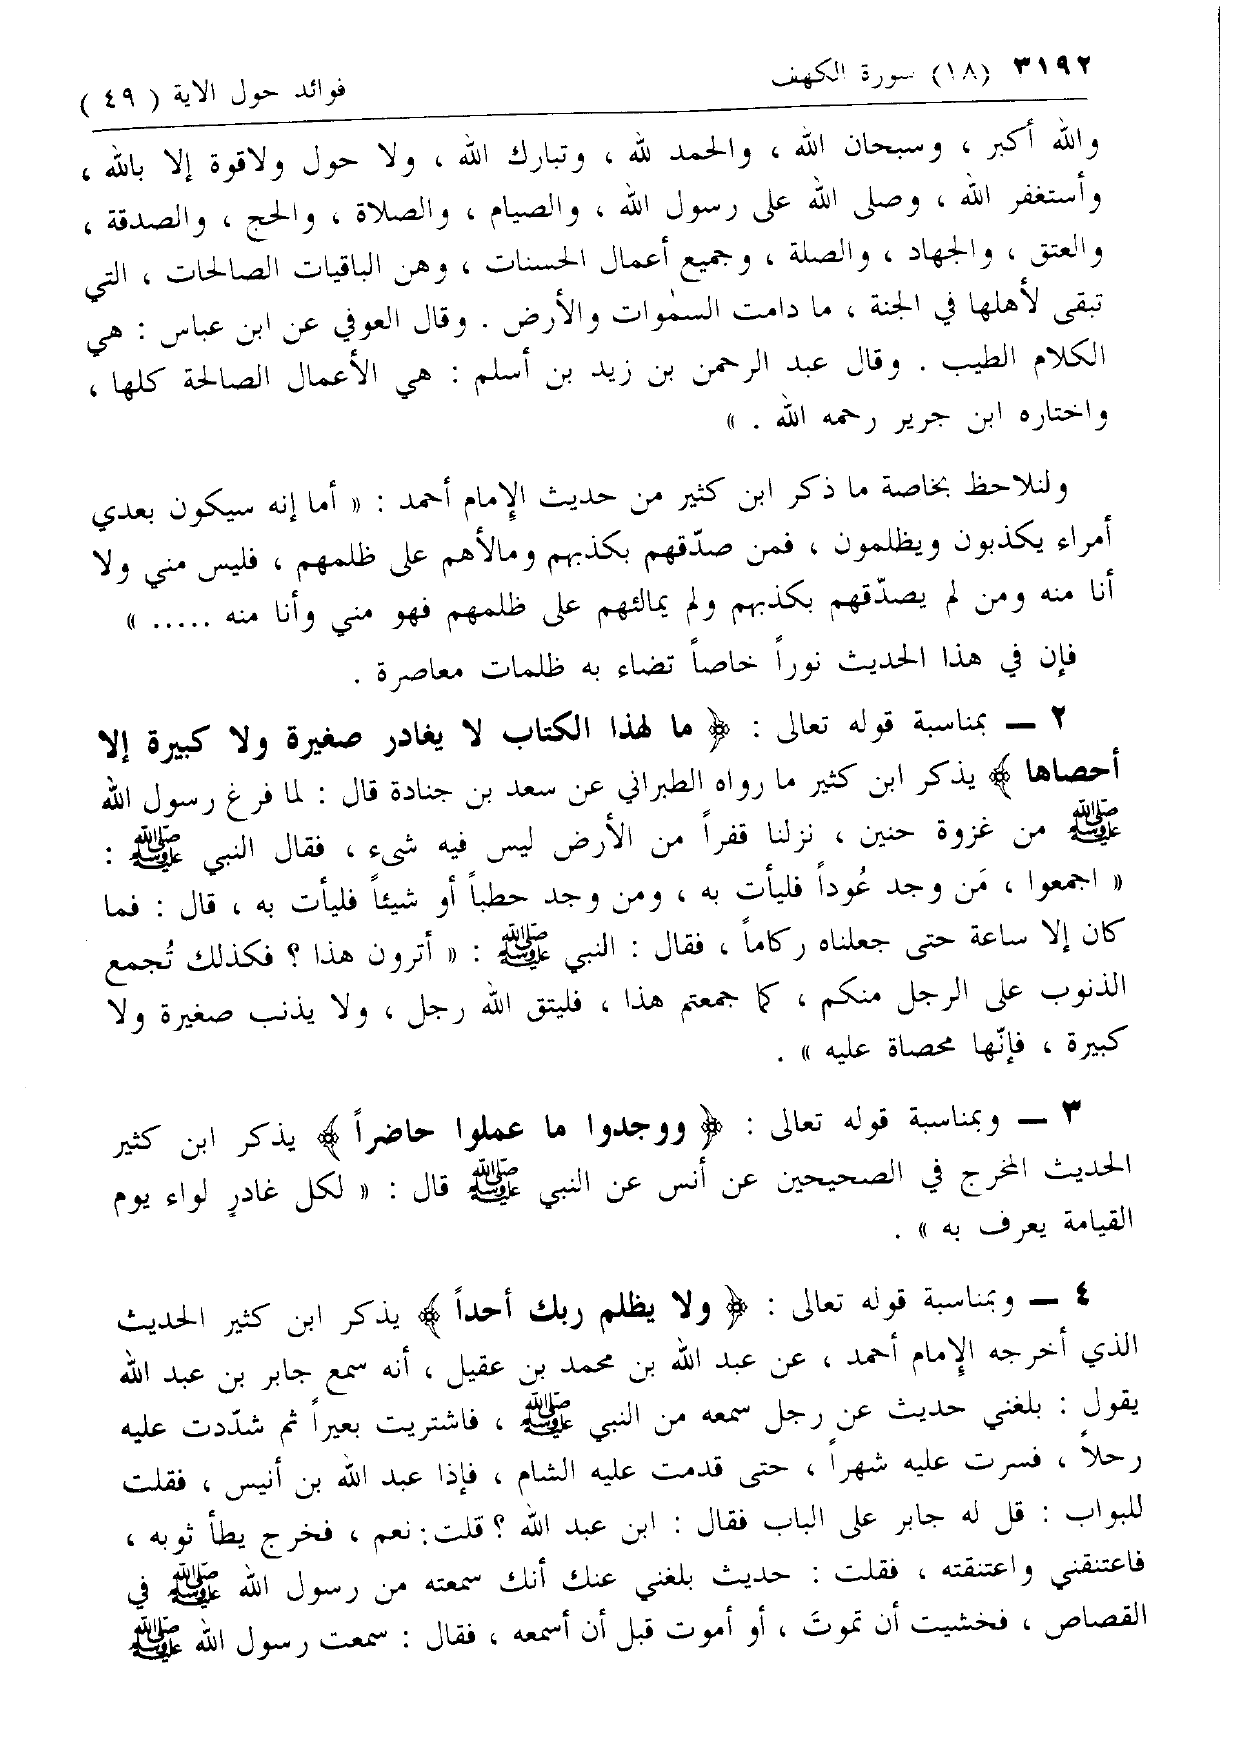 ٣١٩٢ (١٨) سورة الكهف فوائد حول الآية ( ٤٩ )
والله أكبر ، وسبحان الله ، والحمد لله ، وتبارك الله ، ولا حول ولاقوة إلا بالله ،
وأستغفر الله ، وصلى الله على رسول الله ، والصيام ، والصلاة ، والحج ، والصدقة ،
والعتق ، والجهاد ، والصلة ، وجميع أعمال الحسنات ، وهن الباقيات الصالحات ، التي
تبقى لأهلها في الجنة ، ما دامت السمٰوات والأرض . وقال العوفي عن ابن عباس : هي
الكلام الطيب . وقال عبد الرحمن بن زيد بن أسلم : هي الأعمال الصالحة كلها ،
واختاره ابن جرير رحمه الله . »
ولنلاحظ بخاصة ما ذكر ابن كثير من حديث الإمام أحمد : « أما إنه سيكون بعدي
أمراء يكذبون ويظلمون ، فمن صدّقهم بكذبهم ومالأهم على ظلمهم ، فليس مني ولا
أنا منه ومن لم يصدّقهم بكذبهم ولم يمالئهم على ظلمهم فهو مني وأنا منه ..... »
فإن في هذا الحديث نوراً خاصاً تضاء به ظلمات معاصرة .
٢ ــ بمناسبة قوله تعالى : ﴿ ما لهذا الكتاب لا يغادر صغيرة ولا كبيرة إلا
أحصاها ﴾ يذكر ابن كثير ما رواه الطبراني عن سعد بن جنادة قال : لما فرغ رسول الله
ﷺ من غزوة حنين ، نزلنا قفراً من الأرض ليس فيه شىء ، فقال النبي ﷺ :
« اجمعوا ، مَن وجد عُوداً فليأت به ، ومن وجد حطباً أو شيئاً فليأت به ، قال : فما
كان إلا ساعة حتى جعلناه ركاماً ، فقال : النبي ﷺ : « أترون هذا ؟ فكذلك تُجمع
الذنوب على الرجل منكم ، كما جمعتم هذا ، فليتق الله رجل ، ولا يذنب صغيرة ولا
كبيرة ، فإنّها محصاة عليه » .
٣ ــ وبمناسبة قوله تعالى : ﴿ ووجدوا ما عملوا حاضراً ﴾ يذكر ابن كثير
الحديث المخرج في الصحيحين عن أنس عن النبي ﷺ قال : « لكل غادرٍ لواء يوم
القيامة يعرف به » .
٤ ــ وبمناسبة قوله تعالى : ﴿ ولا يظلم ربك أحداً ﴾ يذكر ابن كثير الحديث
الذي أخرجه الإمام أحمد ، عن عبد الله بن محمد بن عقيل ، أنه سمع جابر بن عبد الله
يقول : بلغني حديث عن رجل سمعه من النبي ﷺ ، فاشتريت بعيراً ثم شدّدت عليه
رحلاً ، فسرت عليه شهراً ، حتى قدمت عليه الشام ، فإذا عبد الله بن أنيس ، فقلت
للبواب : قل له جابر على الباب فقال : ابن عبد الله ؟ قلت: نعم ، فخرج يطأ ثوبه ،
فاعتنقني واعتنقته ، فقلت : حديث بلغني عنك أنك سمعته من رسول الله ﷺ في
القصاص ، فخشيت أن تموتَ ، أو أموت قبل أن أسمعه ، فقال : سمعت رسول الله ﷺ